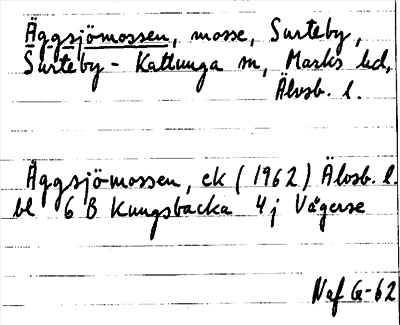 Äggsjömossen, mosse, Surteby,
Surteby-Kattunga sn, Marks hd,
Älvsb. l.
Äggsjömossen, ek (1962) Älvsb. l.
bl 6 B Kungsbacka 4j Vägerse
Naf G-62